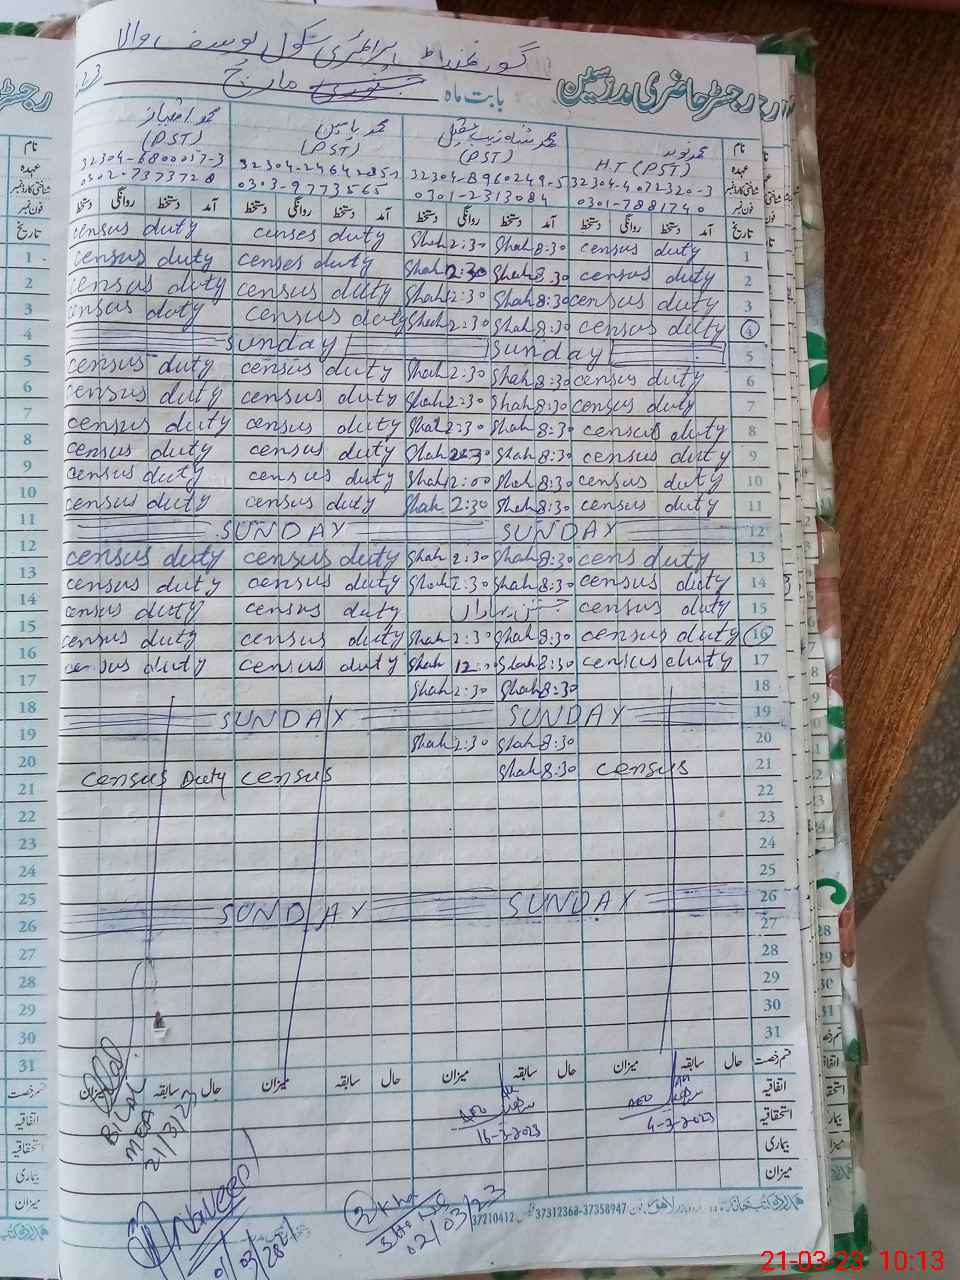 گورنمنٹ پرائمری سکول یوسف والا
رجسٹر حاضری مدرسین بابت ماہ مارچ 23
نام محمد نوید محمد شاہ زیب محمد یامین محمد امتیاز
عہدہ H.T (PST) (PST) (PST) (PST)
شناختی کارڈ نمبر 32304-4072320-3 32304-8960249-5 32304-2464285 32304-6800017-3
فون نمبر 0301-7881740 0301-2313084 0303-9773565 0302-7373728
تاریخ آمد دستخط روانگی دستخط آمد دستخط روانگی دستخط آمد دستخط روانگی دستخط آمد دستخط روانگی دستخط
1 census duty Shah 8:30 Shah 2:30 censes duty census duty
2 census duty Shah 8:30 Shah 2:30 censes duty census duty
3 census duty Shah 8:30 Shah 2:30 census duty census duty
4 census duty Shah 8:30 Shah 2:30 census duty census duty
5 Sunday Sunday
6 census duty Shah 8:30 Shah 2:30 census duty census duty
7 census duty Shah 8:30 Shah 2:30 census duty census duty
8 census duty Shah 8:30 Shah 2:30 census duty census duty
9 census duty Shah 8:30 Shah 2:30 census duty census duty
10 census duty Shah 8:30 Shah 12:00 census duty census duty
11 census duty Shah 8:30 Shah 2:30 census duty census duty
12 SUNDAY SUNDAY
13 cens duty Shah 8:30 Shah 2:30 census duty census duty
14 census duty Shah 8:30 Shah 2:30 census duty census duty
15 census duty جشن بہاراں census duty census duty
16 census duty Shah 8:30 Shah 2:30 census duty census duty
17 census duty Shah 8:30 Shah 12: census duty census duty
18 Shah 8:30 Shah 2:30
19 SUNDAY SUNDAY
20 Shah 8:30 Shah 2:30
21 census Shah 8:30 census Duty census
22
23
24
25
26 SUNDAY SUNDAY
27
28
29
30
31
قسم رخصت حال سابقہ میزان حال سابقہ میزان حال سابقہ میزان حال سابقہ میزان
اتفاقیہ
استحقاقیہ
بیماری
میزان
AEO 4-3-2023
AEO 16-3-2023
Bilal MEA 21/3/23
Naveed 01/03/2023
02/03/23
37210412 37312368-37358947
21-03-23 10:13